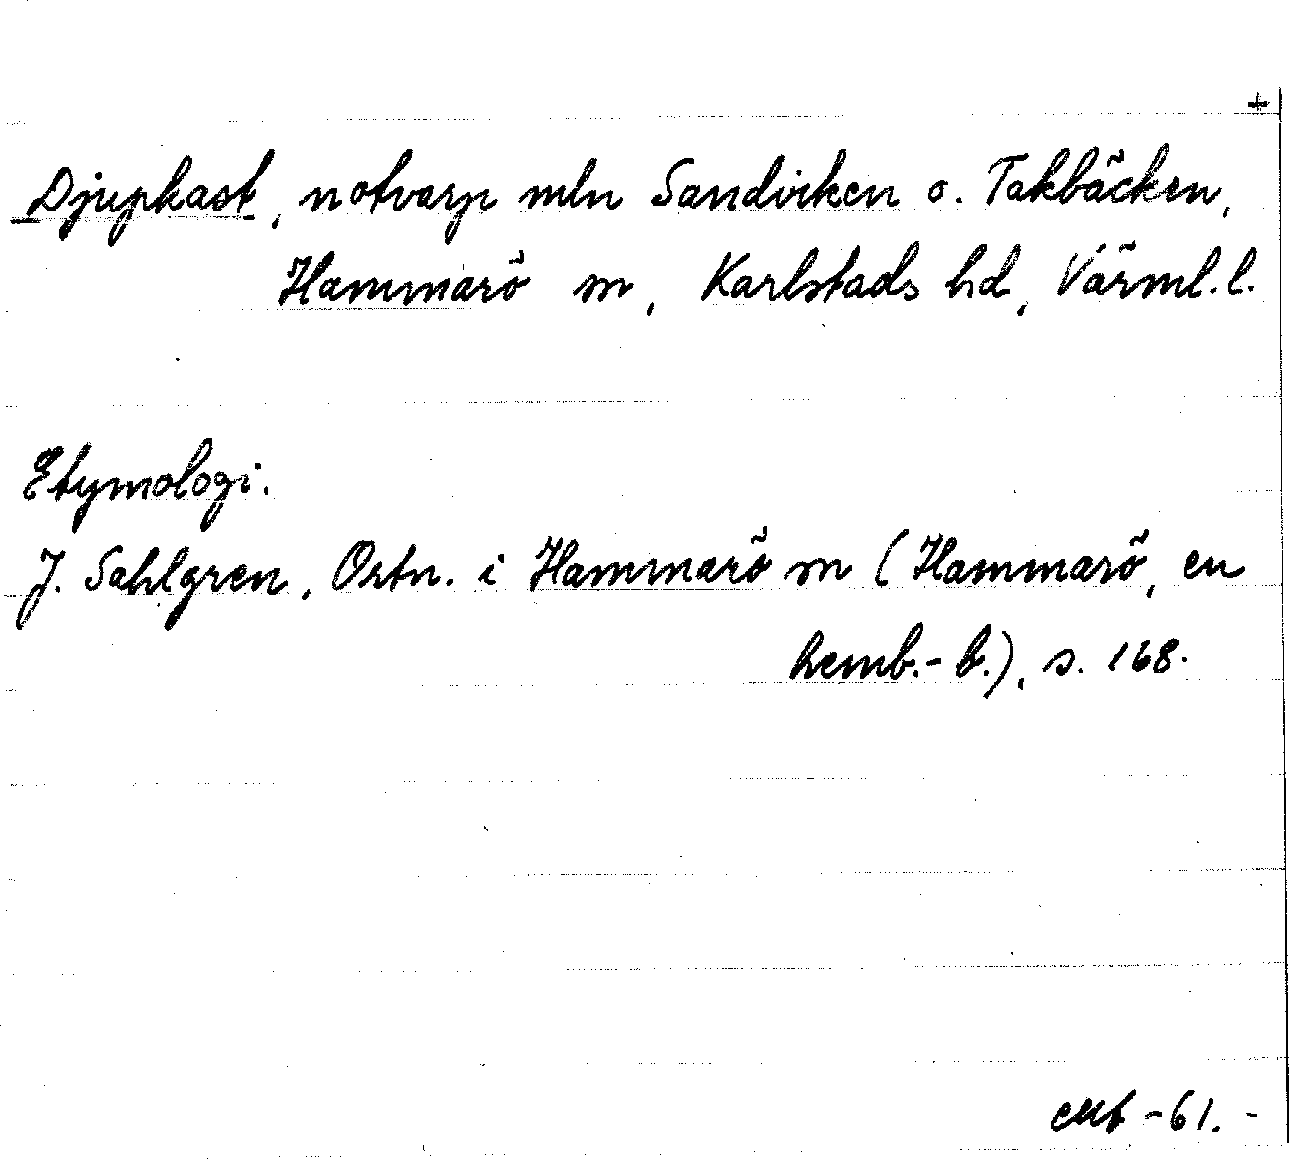 +
Djupkast, notvarp mln Sandviken o. Takbäcken,
Hammarö sn, Karlstads hd, Värml. l.
Etymologi.
J. Sahlgren, Ortn. i Hammarö sn (Hammarö, en
hemb.-b.), s. 168.
-61. -